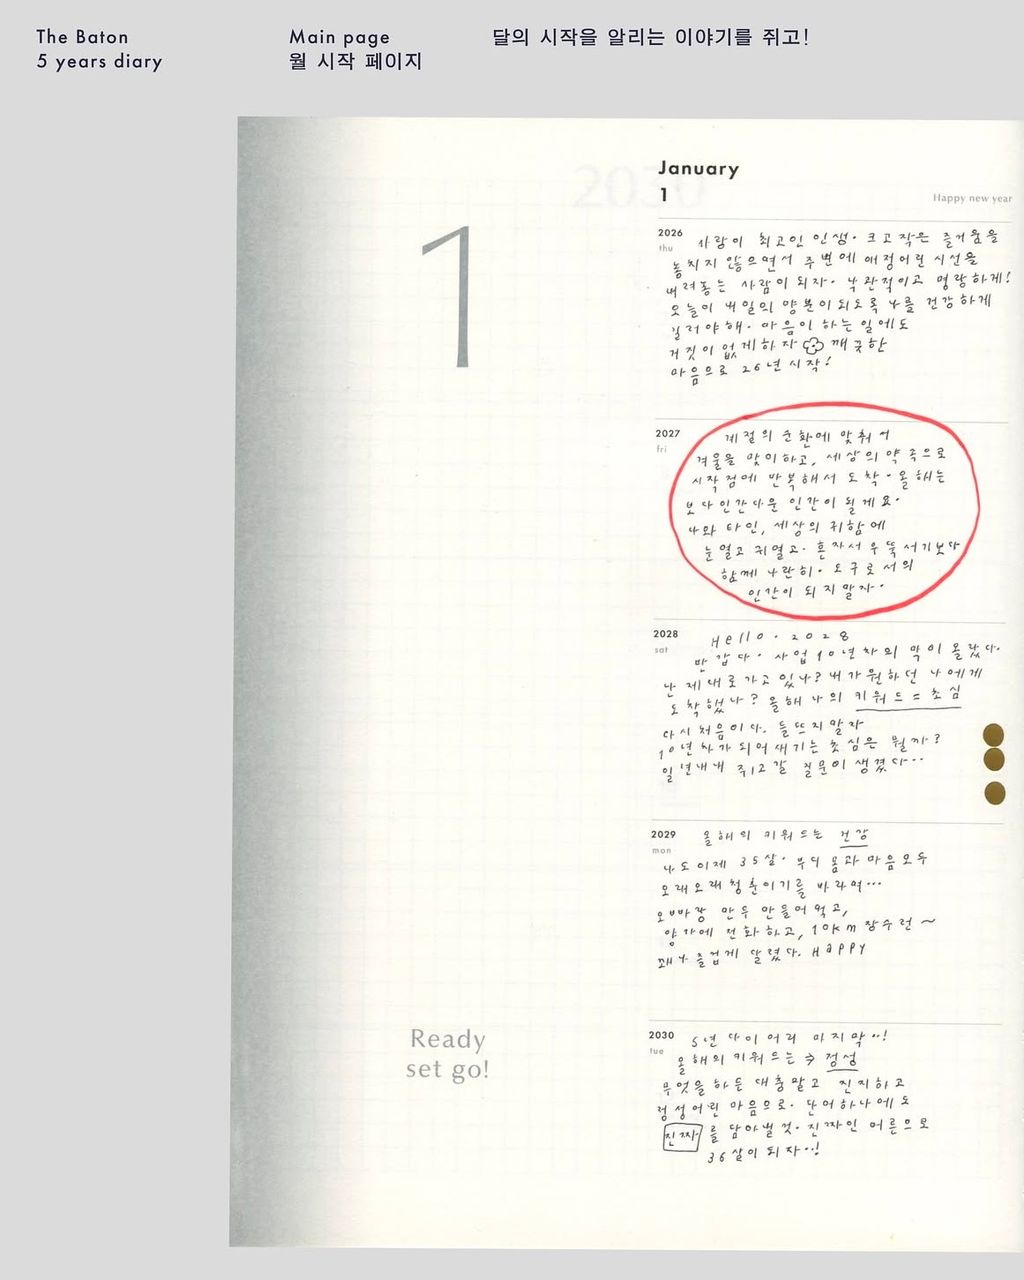 The Baton
5 years diary
Main page
월 시작 페이지
달의 시작을 알리는 이야기를 쥐고!
2030
1
Ready
set go!
January
1
Happy new year
2026
thu
사랑이 최고인 인생. 크고 작은 즐거움을
놓치지 않으면서 주변에 애정어린 시선을
내려놓는 사람이 되자. 낙관적이고 명랑하게!
오늘이 내일의 양분이 되도록 나를 건강하게
길러야 해. 마음이 하는 일에도
거짓이 없게 하자 깨끗한
마음으로 26년 시작!
2027
fri
계절의 순환에 맞춰서
겨울을 맞이하고, 세상의 약속으로
시작점에 반복해서 도착. 올해는
보다 인간다운 인간이 될게요.
나와 타인, 세상의 귀함에
눈 열고 귀 열고. 혼자서 우뚝 서기보다
함께 나란히. 도구로서의
인간이 되지 말자.
2028
sat
Hello. 2028
반갑다. 사업 10년차의 막이 올랐다.
난 제대로 가고 있나? 내가 원하던 나에게
도착했나? 올해 나의 키워드 = 초심
다시 처음이다. 들뜨지 말자
10년차가 되어 새기는 초심은 뭘까?
일년내내 쥐고 갈 질문이 생겼다...
2029
mon
올해의 키워드는 건강
나도 이제 35살. 부디 몸과 마음 모두
오래오래 청춘이기를 바라며...
오빠랑 만두 만들어 먹고,
양가에 전화하고, 10km 장수런~
꽤나 즐겁게 달렸다. Happy
2030
tue
5년 다이어리 마지막..!
올해의 키워드는 → 정성
무엇을 하든 대충말고 진지하고
정성어린 마음으로. 단어 하나에도
진짜를 담아낼 것. 진짜인 어른으로
36살이 되자..!